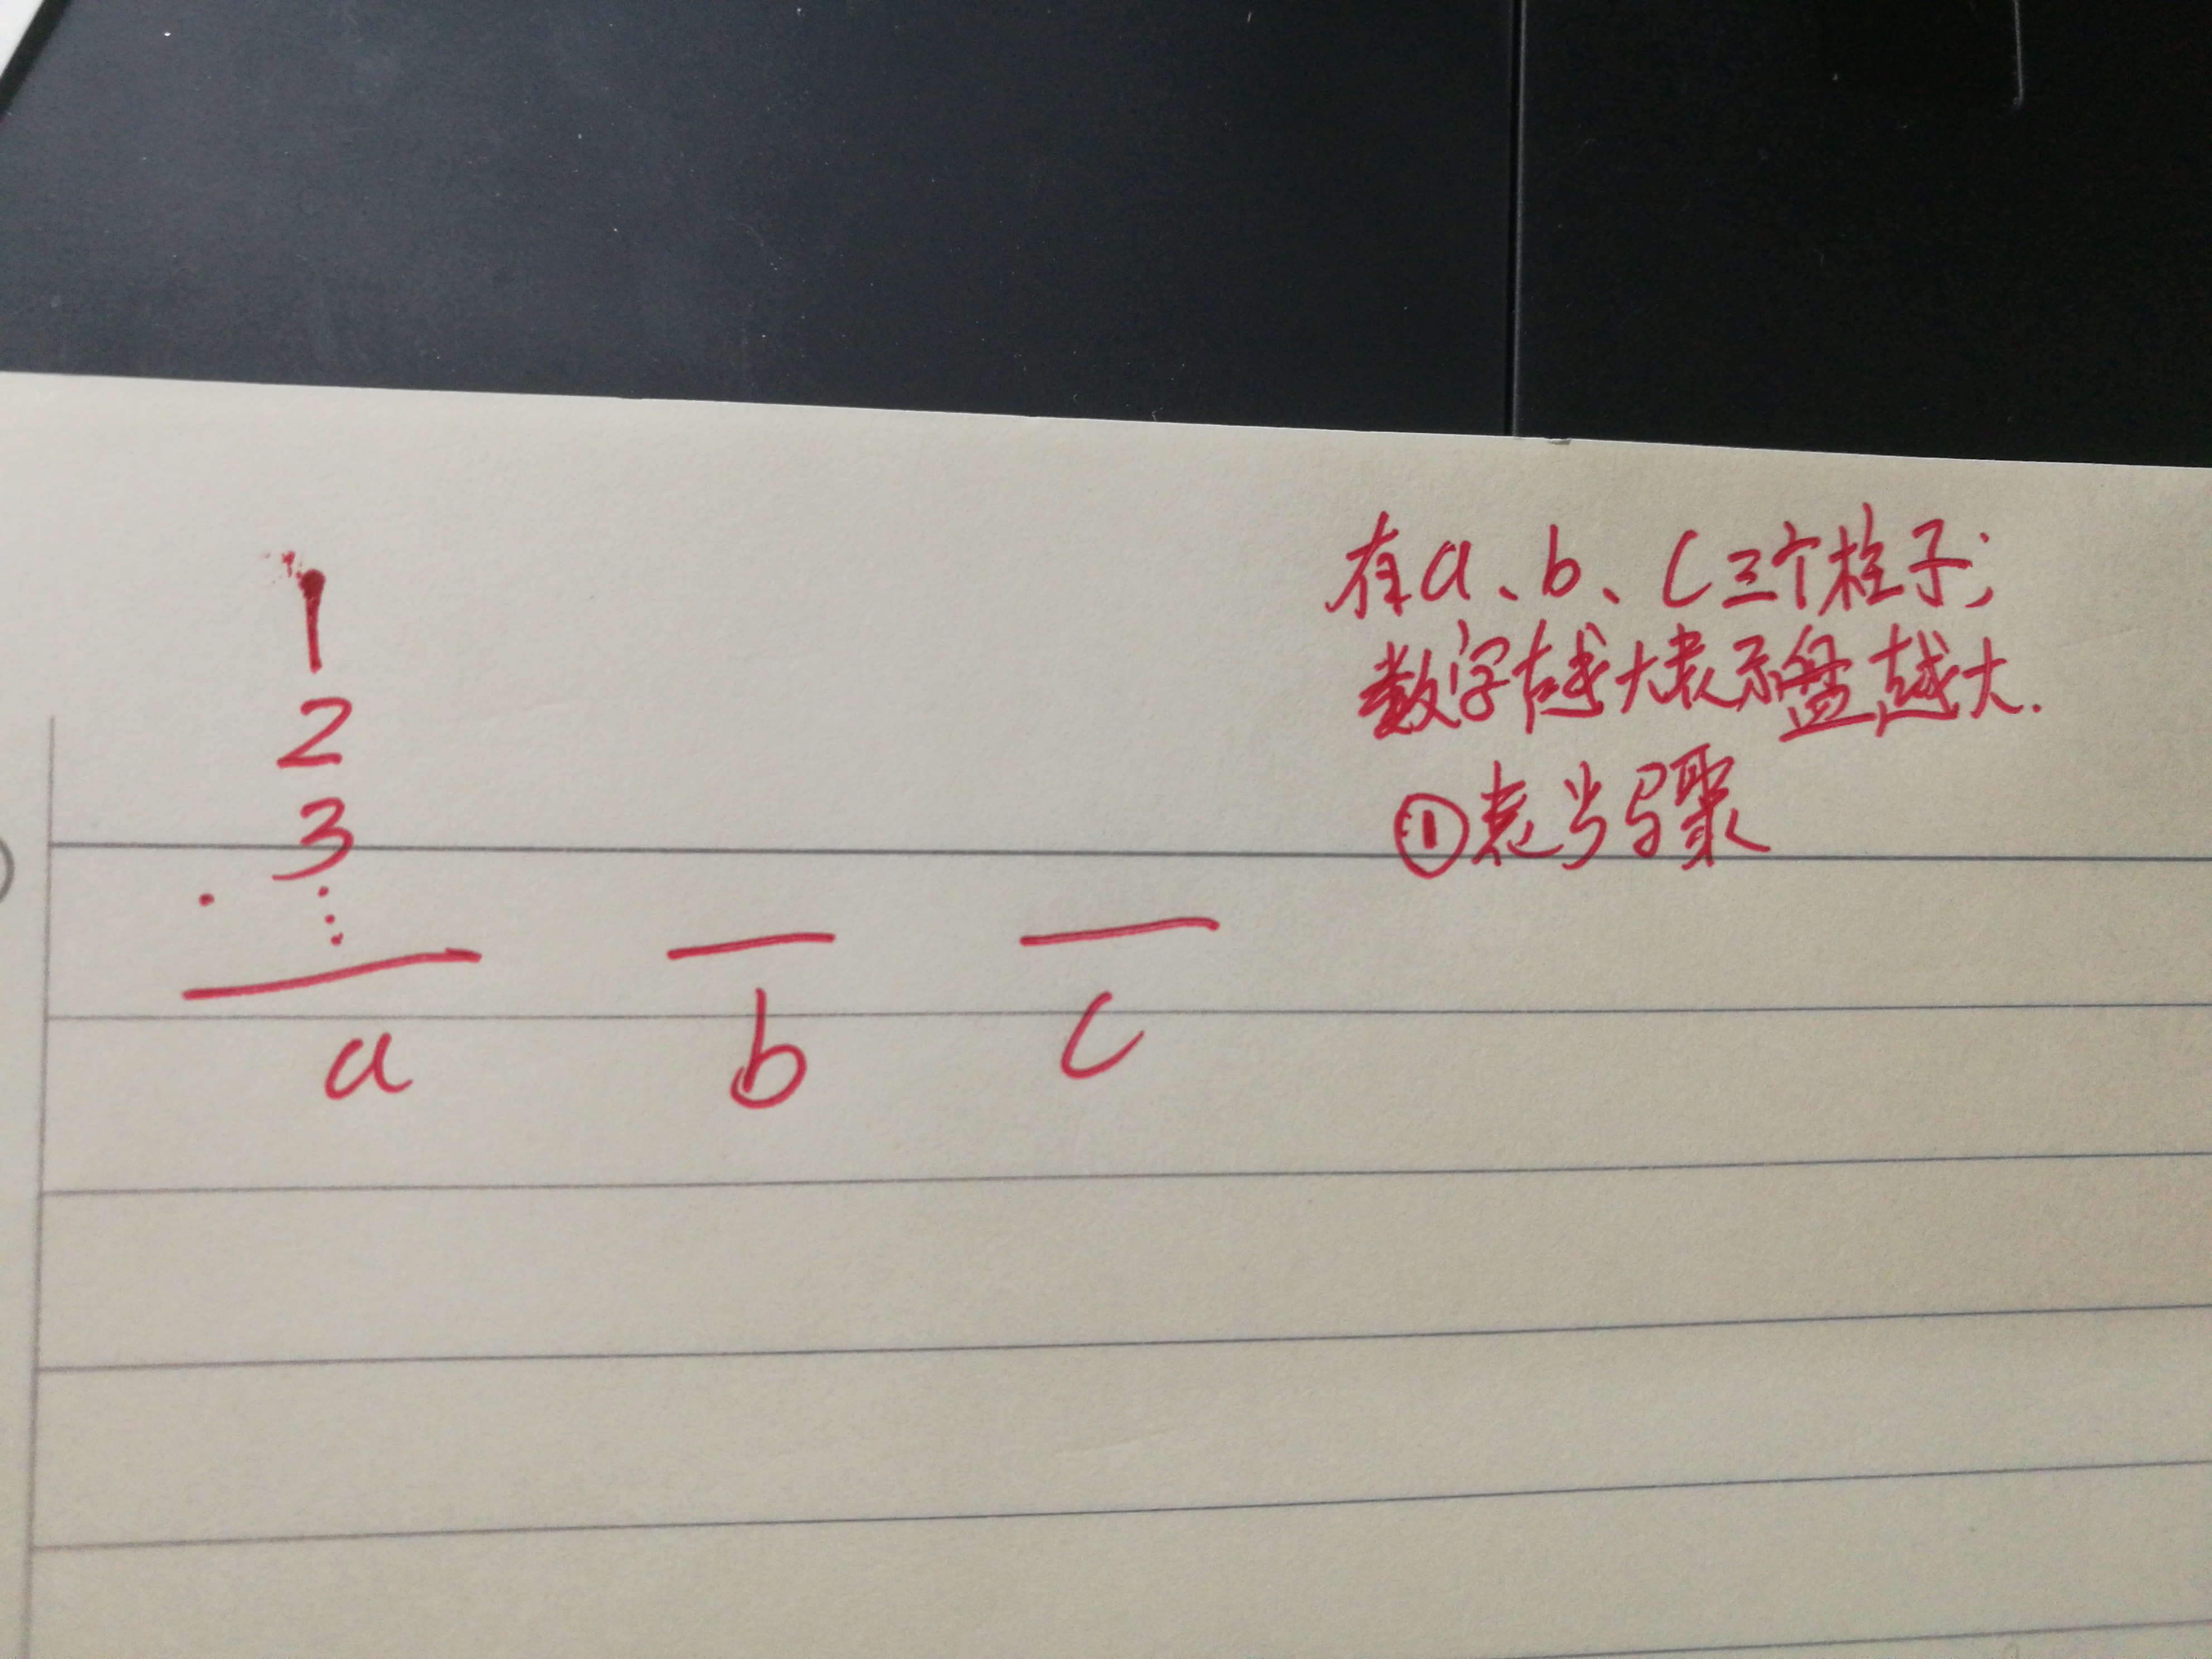 1
2
3
⋮
a b c
有a、b、c三个柱子;
数字越大表示盘越大.
①表步骤